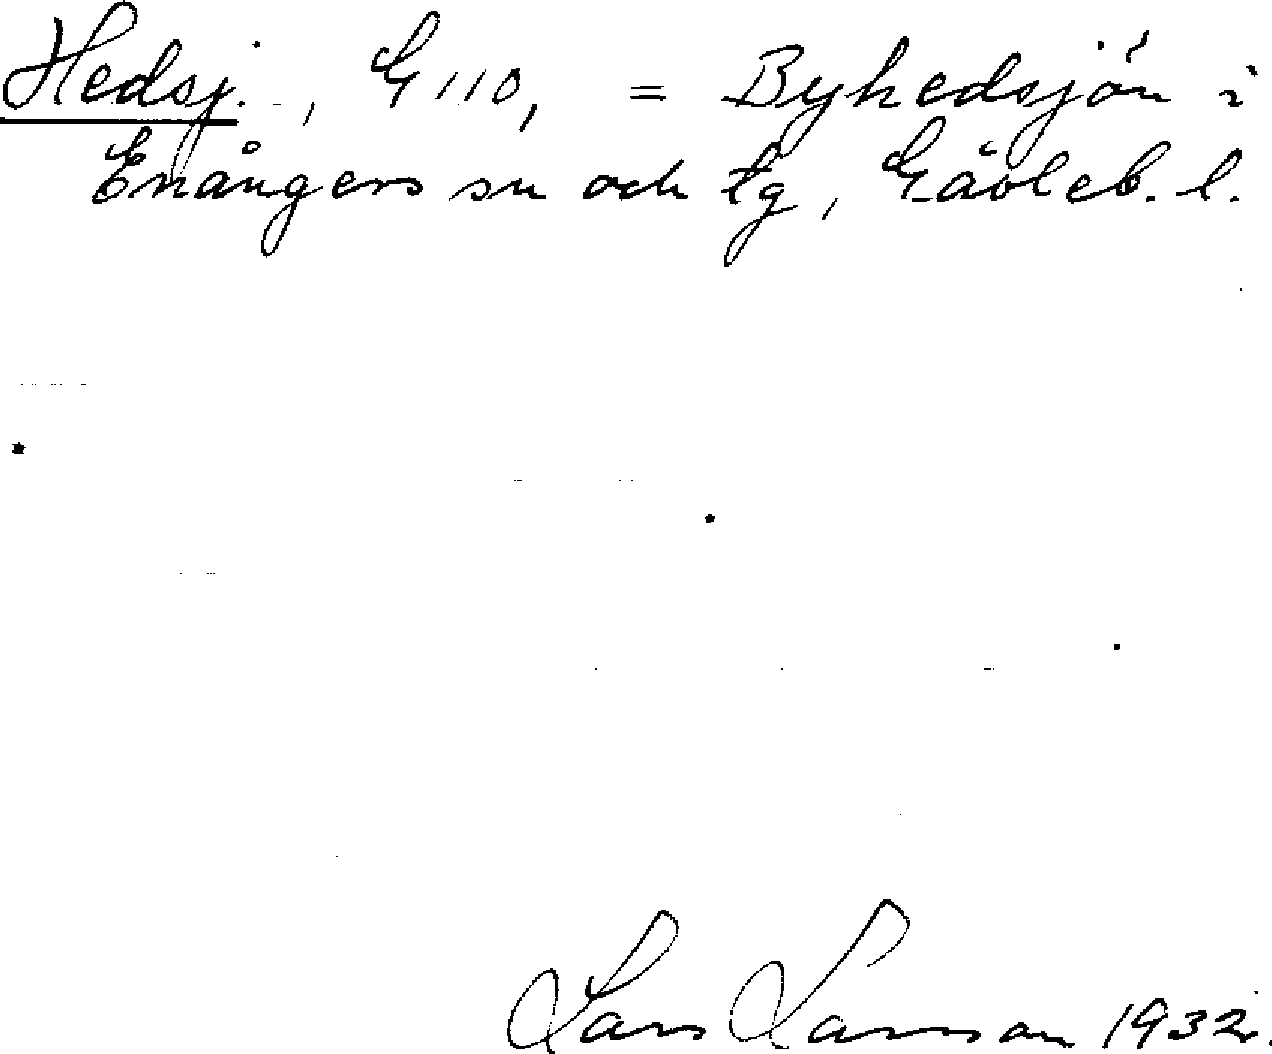 Hedsj., G 110, = Byhedsjön i
Enångers sn och tg, Gävleb. l.
Lars Larsson 1932.